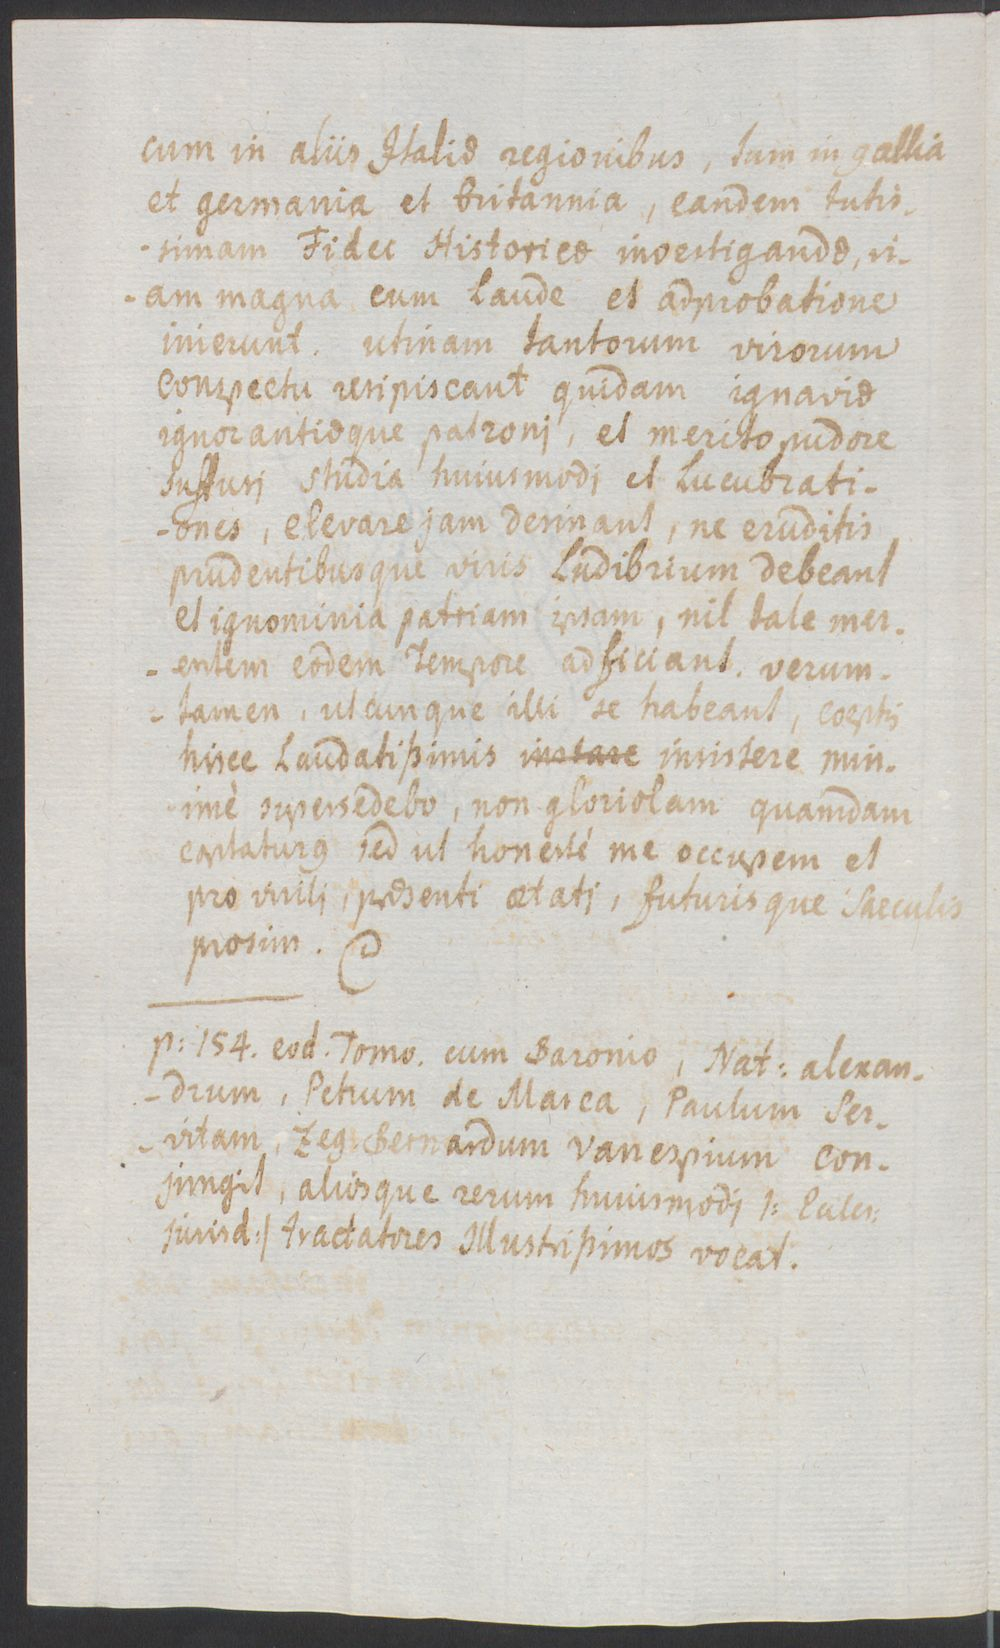 cum in aliis Italiæ regionibus, tum in gallia
et germania et britannia, eandem tutis-
-simam Fidei Historicæ investigandæ, vi-
-am magna cum Laude et adprobatione
inierunt. utinam tantorum virorum
conspectu resipiscant quidam ignaviæ
ignorantiæque patronj, et merito pudore
suffusj studia huiusmodj et Lucubrati-
-ones, elevare jam desinant, ne eruditis
prudentibusque viris Ludibrium debeant
et ignominia patriam ipsam, nil tale mer-
-entem eodem Tempore adficiant. verum-
-tamen, utcunque illi se habeant, coeptis
hisce Laudatißimis instare insistere min-
imè supersedebo, non gloriolam quamdam
captaturus sed ut honestè me occupem et
pro virilj, præsenti ætatj, futurisque saeculis
prosim.
p: 154. eod. Tomo. cum Baronio, Nat: alexan-
-drum, Petrum de Marca, Paulum Ser-
-vitam, Zeg: Bernardum vanespium con-
jungit, aliosque rerum huiusmodj /: Eccles:
jurisd:/ tractatores Illustrißimos vocat.